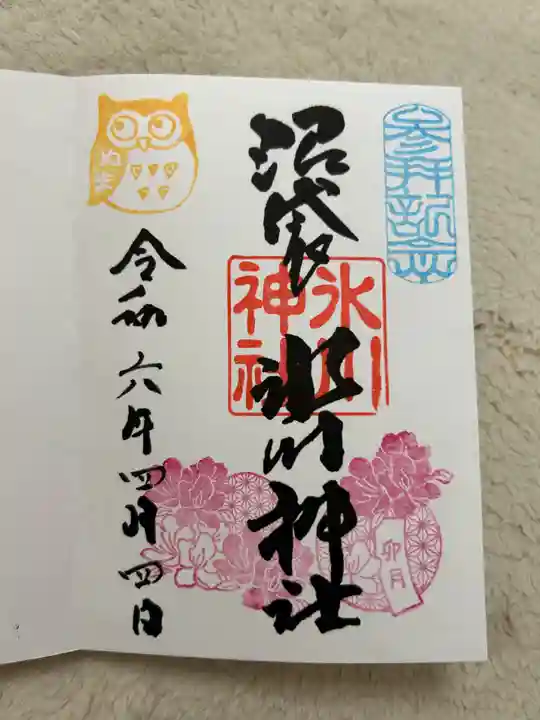 参拝記念
沼袋
氷川神社
氷川
神社
卯月
令和六年四月四日